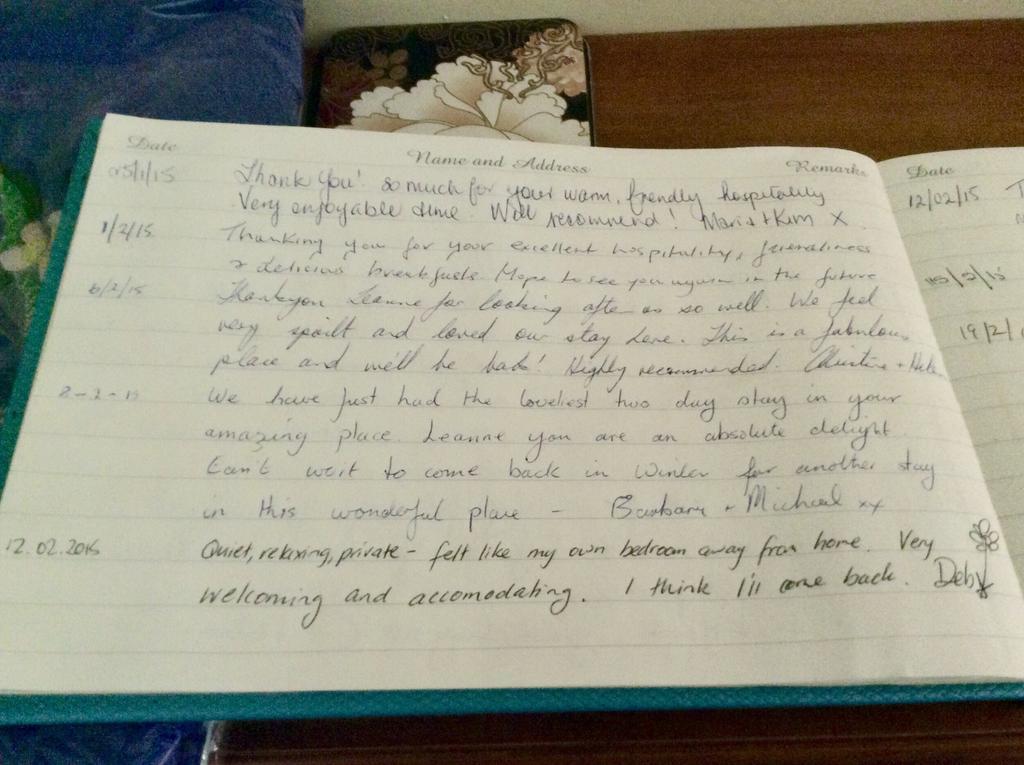 Date Name and Address Remarks
25/1/15 Thank You! so much for your warm, friendly hospitality
Very enjoyable time. Will recommend! Maria + Kim X
1/2/15 Thanking you for your excellent hospitality, friendliness
& delicious breakfasts. Hope to see you again in the future
6/2/15 Thankyou Leanne for looking after us so well. We feel
very spoilt and loved our stay here. This is a fabulous
place and we'll be back! Highly recommended. Christine + Helen
8-2-15 We have just had the loveliest two day stay in your
amazing place. Leanne you are an absolute delight
Can't wait to come back in Winter for another stay
in this wonderful place - Barbara + Michael xx
12.02.2015 Quiet, relaxing, private - felt like my own bedroom away from home. Very
welcoming and accomodating. I think I'll come back. Deb
Date
12/02/15
15/2/15
19/2/